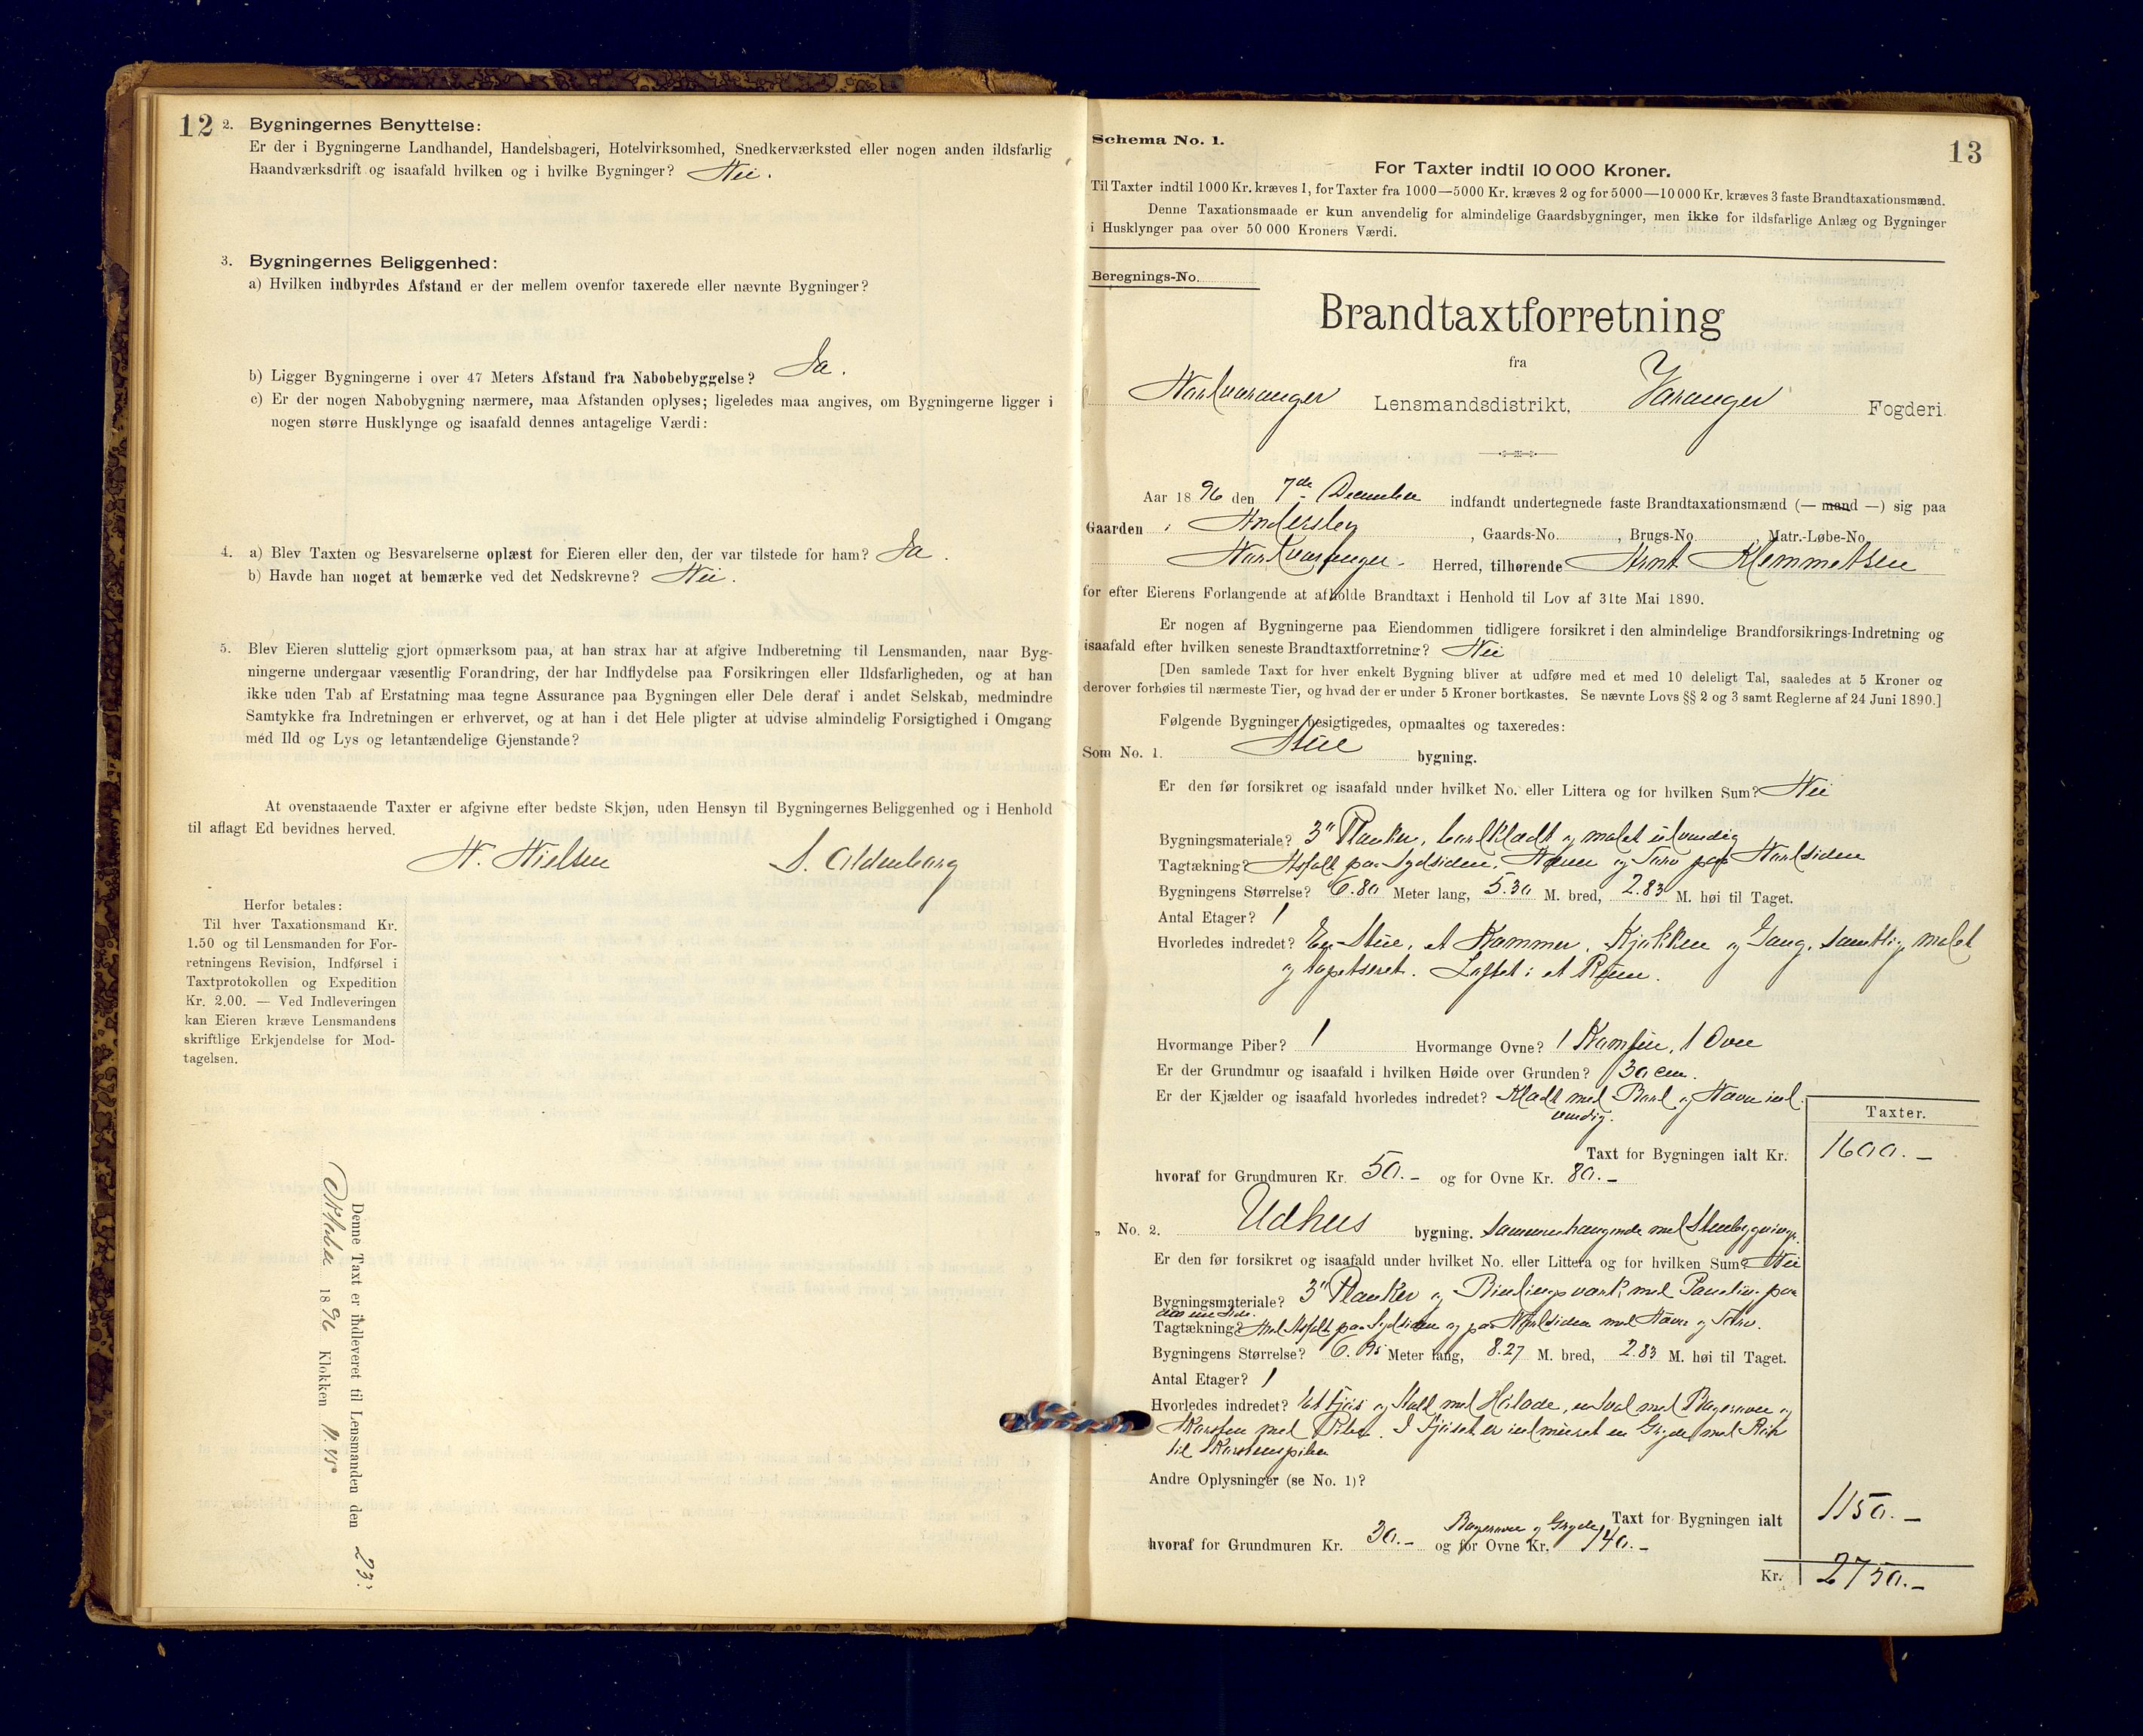 12
2. Bygningernes Benyttelse:
Er der i Bygningerne Landhandel, Handelsbageri, Hotelvirksomhed, Snedkerværksted eller nogen anden ildsfarlig
Haandværksdrift og isaafald hvilken og i hvilke Bygninger? Nei.
3. Bygningernes Beliggenhed:
a) Hvilken indbyrdes Afstand er der mellem ovenfor taxerede eller nævnte Bygninger?
b) Ligger Bygningerne i over 47 Meters Afstand fra Nabobebyggelse? Ja.
c) Er der nogen Nabobygning nærmere, maa Afstanden oplyses; ligeledes maa angives, om Bygningerne ligger i
nogen større Husklynge og isaafald dennes antagelige Værdi:
4. a) Blev Taxten og Besvarelserne oplæst for Eieren eller den, der var tilstede for ham? Ja.
b) Havde han noget at bemærke ved det Nedskrevne? Nei.
5. Blev Eieren sluttelig gjort opmærksom paa, at han strax har at afgive Indberetning til Lensmanden, naar Byg-
ningerne undergaar væsentlig Forandring, der har Indflydelse paa Forsikringen eller Ildsfarligheden, og at han
ikke uden Tab af Erstatning maa tegne Assurance paa Bygningen eller Dele deraf i andet Selskab, medmindre
Samtykke fra Indretningen er erhvervet, og at han i det Hele pligter at udvise almindelig Forsigtighed i Omgang
med Ild og Lys og letantændelige Gjenstande?
At ovenstaaende Taxter er afgivne efter bedste Skjøn, uden Hensyn til Bygningernes Beliggenhed og i Henhold
til aflagt Ed bevidnes herved.
N. Nielsen S. Oldenborg
Herfor betales:
Til hver Taxationsmand Kr.
1.50 og til Lensmanden for For-
retningens Revision, Indførsel i
Taxtprotokollen og Expedition
Kr. 2.00. — Ved Indleveringen
kan Eieren kræve Lensmandens
skriftlige Erkjendelse for Mod-
tagelsen.
Denne Taxt er indleveret til Lensmanden den 23.
Oktober 1896 Klokken 11.45
13
Schema No. 1.
For Taxter indtil 10 000 Kroner.
Til Taxter indtil 1000 Kr. kræves 1, for Taxter fra 1000—5000 Kr. kræves 2 og for 5000—10 000 Kr. kræves 3 faste Brandtaxationsmænd.
Denne Taxationsmaade er kun anvendelig for almindelige Gaardsbygninger, men ikke for ildsfarlige Anlæg og Bygninger
i Husklynger paa over 50 000 Kroners Værdi.
Beregnings-No.
Brandtaxtforretning
fra
Nordvaranger Lensmandsdistrikt, Varanger Fogderi.
Aar 1896 den 7de December indfandt undertegnede faste Brandtaxationsmænd (— mand —) sig paa
Gaarden i Andersby, Gaards-No. , Brugs-No. , Matr.-Løbe-No.
Nordvaranger Herred, tilhørende Arnt Klemmetsen
for efter Eierens Forlangende at afholde Brandtaxt i Henhold til Lov af 31te Mai 1890.
Er nogen af Bygningerne paa Eiendommen tidligere forsikret i den almindelige Brandforsikrings-Indretning og
isaafald efter hvilken seneste Brandtaxtforretning? Nei
[Den samlede Taxt for hver enkelt Bygning bliver at udføre med et med 10 deleligt Tal, saaledes at 5 Kroner og
derover forhøies til nærmeste Tier, og hvad der er under 5 Kroner bortkastes. Se nævnte Lovs §§ 2 og 3 samt Reglerne af 24 Juni 1890.]
Følgende Bygninger besigtigedes, opmaaltes og taxeredes:
Som No. 1. Stue bygning.
Er den før forsikret og isaafald under hvilket No. eller Littera og for hvilken Sum? Nei
Bygningsmateriale? 3" Planker, bordklædt og malet udvendig
Tagtækning? Asfalt paa Sydsiden, Næver og Torv paa Nordsiden
Bygningens Størrelse? 6.80 Meter lang, 5.30 M. bred, 2.83 M. høi til Taget.
Antal Etager? 1
Hvorledes indredet? En Stue, et Kammer, Kjøkken og Gang, samtlig malet
og tapetseret. Loftet i et Rum.
Hvormange Piber? 1 Hvormange Ovne? 1 Komfur, 1 Ovn
Er der Grundmur og isaafald i hvilken Høide over Grunden? 30 cm.
Er der Kjælder og isaafald hvorledes indredet? Klædt med Bord og Næver ind-
vendig.
Taxter.
Taxt for Bygningen ialt Kr. 1600.-
hvoraf for Grundmuren Kr. 50.- og for Ovne Kr. 80.-
" No. 2. Udhus bygning. sammenhængende med Stuebygningen.
Er den før forsikret og isaafald under hvilket No. eller Littera og for hvilken Sum? Nei
Bygningsmateriale? 3" Planker og Bindingsværk med Paneling paa
den ene Side.
Tagtækning? Med Asfalt paa Sydsiden og paa Nordsiden med Næver og Torv.
Bygningens Størrelse? 6.95 Meter lang, 8.27 M. bred, 2.83 M. høi til Taget.
Antal Etager? 1
Hvorledes indredet? Et Fjøs og Stald med Hølade, en Sval med Bagerovn og
Skorsten med Piber. I Fjøset er indmuret en Gryde med Rør
til Skorstenspiben
Andre Oplysninger (se No. 1)?
Taxt for Bygningen ialt 1150.-
Bagerovn og Gryde
hvoraf for Grundmuren Kr. 30.- og for Ovne Kr. 140.-
Kr. 2750.-